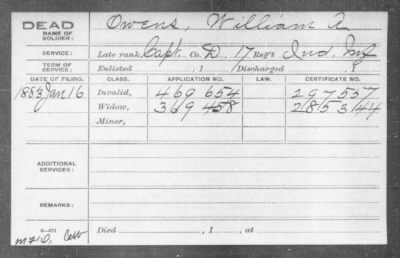 DEAD
NAME OF SOLDIER: Owens, William
SERVICE: Late rank Capt. Co. D, 17 Reg't Ind. Inf
TERM OF SERVICE: Enlisted , 1 Discharged , 1
DATE OF FILING. CLASS. APPLICATION NO. LAW. CERTIFICATE NO.
1883 Jan 16 Invalid, 460 654 297 557
Widow, 369 458 285 344
Minor,
ADDITIONAL SERVICES:
REMARKS:
Died , 1 , at